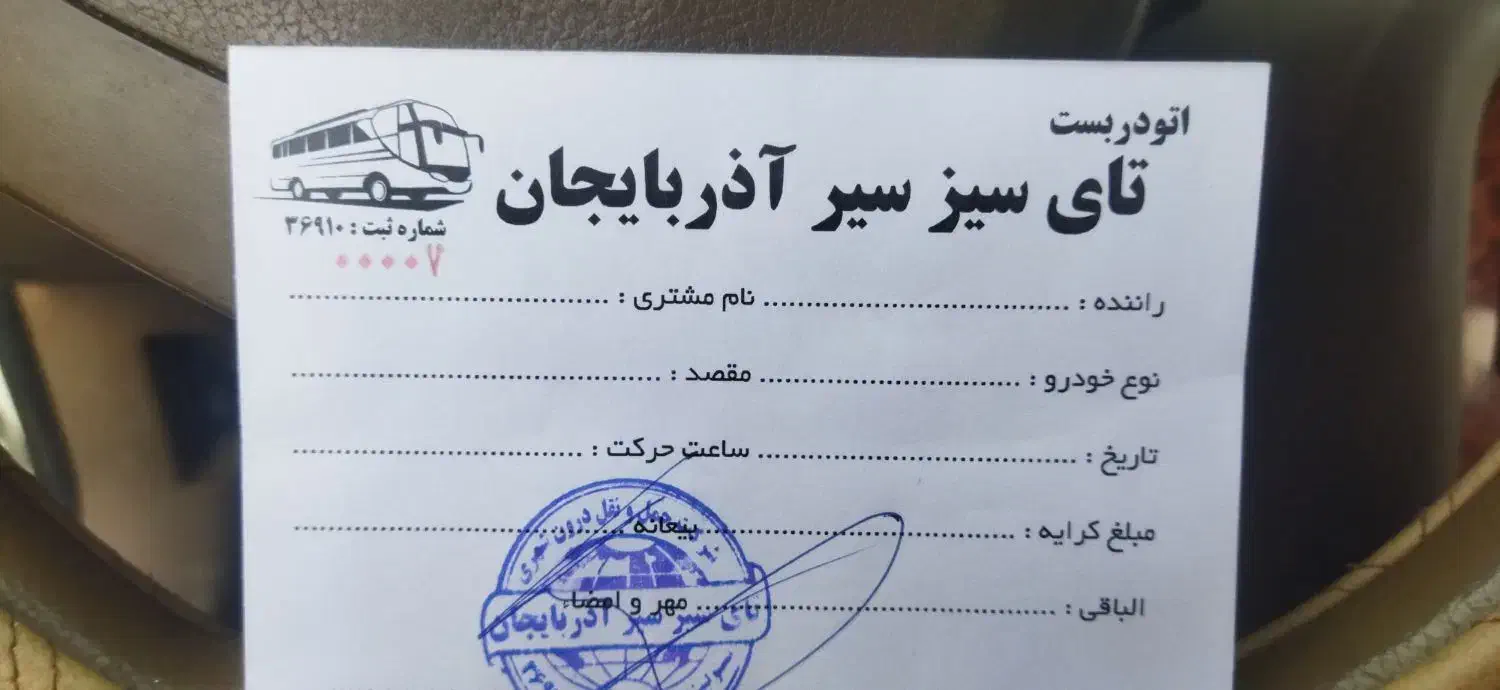 اتودربست
تای سیز سیر آذربایجان
شماره ثبت : ۳۶۹۱۰
۰۰۰۰۷
راننده : .................................... نام مشتری : ......................................
نوع خودرو : ............................... مقصد : ............................................
تاریخ : ...................................... ساعت حرکت : ..................................
مبلغ کرایه : ..................................... بیعانه .......................................
الباقی : ........................................... مهر و امضاء
حمل و نقل درون شهری
تای سیز سیر آذربایجان